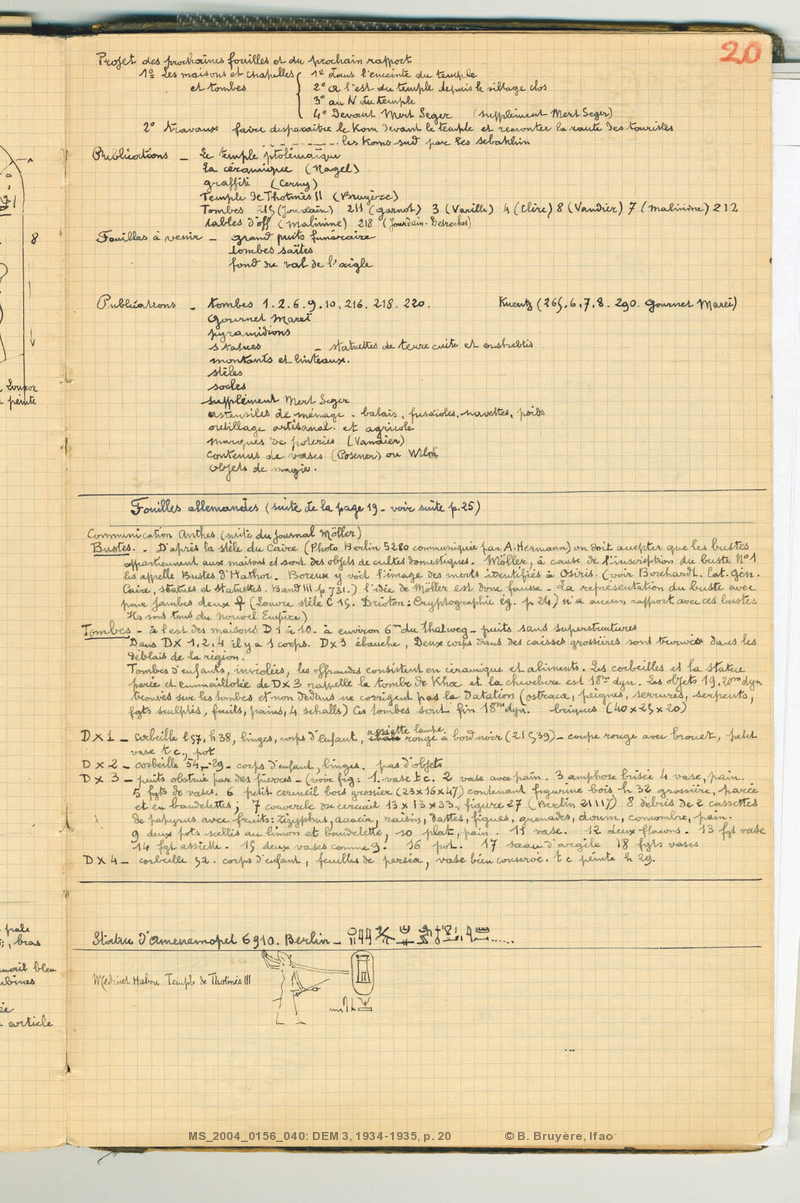 20
Projet des prochaines fouilles et du prochain rapport
1º Les maisons et chapelles 1º dans l'enceinte du temple
et tombes 2º à l'est du temple depuis le village clos
3º au N du temple
4º Devant Mert Seger (supplément Mert Seger)
2º travaux faire disparaître le Kom devant le temple et remonter la route des touristes
les Koms sud par les sebakhin
Publications – Le temple ptolémaïque
La céramique (Nagel)
graffiti (Cerny)
Temple de Thotmès II (Bruyère)
Tombes 215 (Jourdain) 211 (Garnot) 3 (Varille) 4 (Clère) 8 (Vandier) 7 (Malinine) 212
tables d'off (Malinine) 218 (Jourdain-Desroches)
Fouilles à venir – grand puits funéraire
tombes saïtes
fond du val de l'aigle
Publications – tombes 1.2.6.9.10.216.218.220. Kuentz (265.6.7.8.290. Gournet Mareï)
Gournet Mareï
pyramidions
statues – statuettes de terre cuite et oushebtis
montants et linteaux.
stèles
socles
supplément Mert Seger
ustensiles de ménage – balais, fusaïoles, navettes, poids
outillage artisanal et agricole
marques de poteries (Vandier)
contenus de vases (Posener) ou
objets de magie.
Fouilles allemandes (suite de la page 19 – voir suite p.25)
Communication Anthes (suite du Journal Möller)
Bustes. – D'après la stèle du Caire (Photo Berlin 5280 communiquée par A. Hermann) on doit accepter que les bustes
appartiennent aux maisons et sont des objets de cultes domestiques. Möller, à cause de l'inscription du buste Nº1
les appelle Bustes d'Hathor. Boreux y voit l'image des morts identifiés à Osiris. (voir Borchardt. Cat. gén.
Caire, statues et statuettes. Band III p 731.) l'idée de Möller est donc fausse. – la représentation du buste avec
pour jambes deux (Louvre stèle C 15. Drioton: Cryptographie ég. p. 24) n'a aucun rapport avec ces bustes
Ils sont tous du Nouvel Empire)
Tombes – à l'est des maisons D 1 à 10. à environ 6m du thalweg – puits sans superstructures
Dans DX 1, 2, 4 il y a 1 corps. DX 3 ébauche, Deux corps dans des caisses grossières sont trouvés dans les
déblais de la région.
Tombes d'enfants, inviolées, les offrandes consistent en céramique et aliments. Les corbeilles et la statue
parée et emmaillotée de DX 3 rappelle la tombe de Kha et la chevelure est 18me dyn. Les objets 19, 20me dyn
trouvés sur les tombes et non dedans ne corrigent pas la datation (ostraca, peignes, serrures, serpents,
fgts sculptés, fruits, pains, 4 schalls) Ces tombes sont fin 18me dyn. briques (40 x 25 x 20)
DX 1 – corbeille l 57, h 38, linges, corps d'enfant, assiette lampe rouge à bord noir (21 x 39) – coupe rouge avec brouet, petit
vase t c., pot
DX 2 – corbeille 54 – 29 – corps d'enfant, linges, pas d'objets
DX 3 – puits obstrué par des pierres – (voir fig: 1. vase t c. 2 vase avec pain. 3 amphore brisée 4 vase, pain.
5 fgts de vases. 6 petit cercueil bois grossier (23 x 16 x 47) contenant figurine bois h 32 grossière, parée
et en bandelettes; 7 couvercle du cercueil 13 x 13 x 35, figure 27 (Berlin 21117) 8 débris de 2 cassettes
de papyrus avec fruits: zizyphus, acacia, raisins, dattes, figues, grenades, doum, concombre, pain.
9 deux pots scellés au limon et bandelette, 10 plat, pain. 11 vase. 12 deux flacons. 13 fgt vase
14 fgt assiette. 15 deux vases comme 9. 16 pot. 17 sceau d'argile 18 fgts vases
DX 4 – corbeille 52. corps d'enfant, feuilles de perséa, vase bien conservé. t c peinte h 29.
Statue d'Amenemopet 6910. Berlin –
Medinet Habou Temple de Thotmès III
MS_2004_0156_040: DEM 3, 1934-1935, p. 20 © B. Bruyère, Ifao